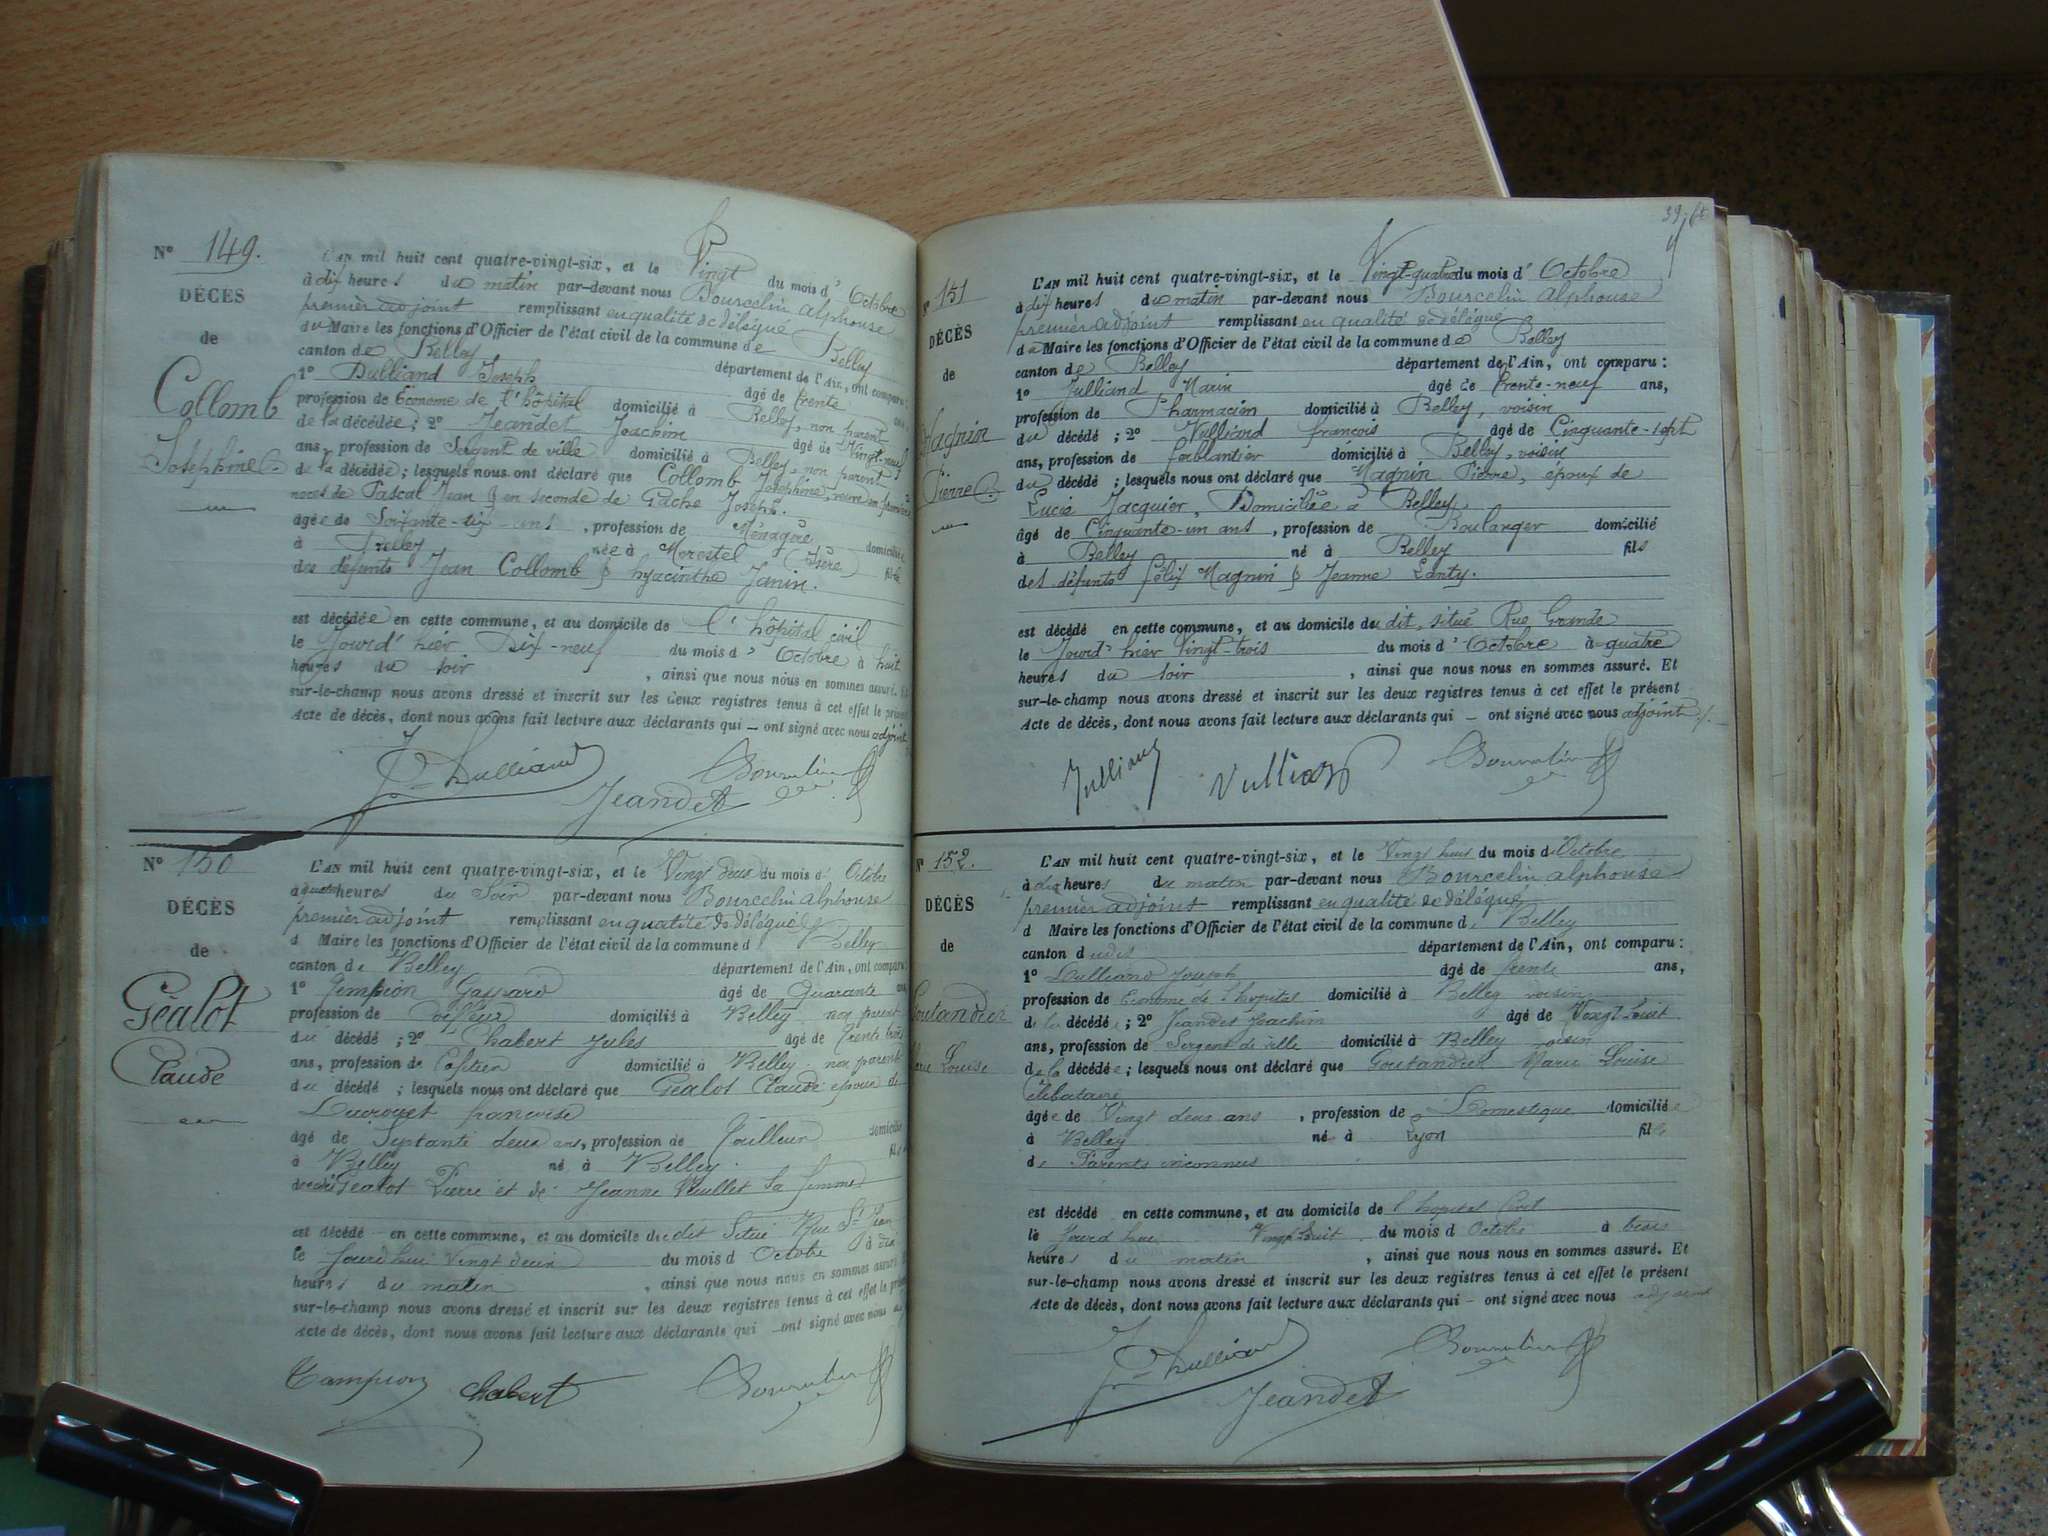 N° 149.
DÉCÈS
de
Collomb
Josephine C.
L'AN mil huit cent quatre-vingt-six, et le Vingt du mois d' Octobre
à dix heures du matin par-devant nous Bourcelin Alphonse
premier adjoint remplissant en qualité de délégué
du Maire les fonctions d'Officier de l'état civil de la commune de Belley
canton de Belley département de l'Ain, ont comparu :
1° Dulliand Joseph âgé de trente
profession de Econome de l'hôpital domicilié à Belley, non parent
de la décédée ; 2° Jeandet Joachim âgé de Vingt-neuf
ans, profession de Sergent de ville domicilié à Belley, non parent
de la décédée ; lesquels nous ont déclaré que Collomb Josephine, veuve en premières
noces de Pascal Jean & en seconde de Gache Joseph.
âgée de Soixante-dix ans, profession de Ménagère domiciliée
à Belley née à Morestel (Isère) fille
des défunts Jean Collomb & hyacinthe Janin.
est décédée en cette commune, et au domicile de l'hôpital civil
le Jourd'hier Dix-neuf du mois d' Octobre à huit
heures du soir, ainsi que nous nous en sommes assuré. Et
sur-le-champ nous avons dressé et inscrit sur les deux registres tenus à cet effet le présent
Acte de décès, dont nous avons fait lecture aux déclarants qui — ont signé avec nous adjoint
J. Dulliand Jeandet Bourcelin
N° 150
DÉCÈS
de
Géalot
Claude
L'AN mil huit cent quatre-vingt-six, et le Vingt deux du mois d' Octobre
à quatre heures du Soir par-devant nous Bourcelin Alphonse
premier adjoint remplissant en qualité de délégué
d Maire les fonctions d'Officier de l'état civil de la commune d Belley
canton de Belley département de l'Ain, ont comparu :
1° Gaspard âgé de Quarante ans
profession de domicilié à Belley non parent
du décédé ; 2° Chabert Jules âgé de trente trois
ans, profession de domicilié à Belley non parent
du décédé ; lesquels nous ont déclaré que Géalot Claude époux de
françoise
âgé de Septante deux ans, profession de Tailleur domicilié
à Belley né à Belley. fils
Géalot Pierre et de Jeanne Vuillet sa femme
est décédé en cette commune, et au domicile du dit Situé Rue St Jean
le Jourd'hui Vingt deux du mois d Octobre à dix
heures du matin, ainsi que nous nous en sommes assuré. Et
sur-le-champ nous avons dressé et inscrit sur les deux registres tenus à cet effet le présent
Acte de décès, dont nous avons fait lecture aux déclarants qui — ont signé avec nous
Chabert Bourcelin
N° 151
DÉCÈS
de
Magnin
Pierre C.
L'AN mil huit cent quatre-vingt-six, et le Vingt-quatre du mois d' Octobre
à dix heures du matin par-devant nous Bourcelin Alphonse
premier adjoint remplissant en qualité de délégué
du Maire les fonctions d'Officier de l'état civil de la commune de Belley
canton de Belley département de l'Ain, ont comparu :
1° Julliand Marin âgé de trente-neuf ans,
profession de Pharmacien domicilié à Belley, voisin
du décédé ; 2° Vulliand françois âgé de Cinquante-sept
ans, profession de ferblantier domicilié à Belley, voisin
du décédé ; lesquels nous ont déclaré que Magnin Pierre, époux de
Lucie Jacquier, Domiciliée à Belley
âgé de Cinquante-un ans, profession de Boulanger domicilié
à Belley né à Belley fils
des défunts félix Magnin & Jeanne Lanty.
est décédé en cette commune, et au domicile du dit, situé Rue Grande
le Jourd'hier Vingt-trois du mois d' Octobre à quatre
heures du soir, ainsi que nous nous en sommes assuré. Et
sur-le-champ nous avons dressé et inscrit sur les deux registres tenus à cet effet le présent
Acte de décès, dont nous avons fait lecture aux déclarants qui — ont signé avec nous adjoint ./.
Julliand Vulliand Bourcelin
N° 152.
DÉCÈS
de
Goutandier
Marie Louise
L'AN mil huit cent quatre-vingt-six, et le Vingt huit du mois d Octobre
à dix heures du matin par-devant nous Bourcelin Alphonse
premier adjoint remplissant en qualité de délégué
d Maire les fonctions d'Officier de l'état civil de la commune de Belley
canton dudit département de l'Ain, ont comparu :
1° Dulliand Joseph âgé de trente ans,
profession de Econome de l'hopital domicilié à Belley voisin
de la décédée ; 2° Jeandet Joachim âgé de Vingt huit
ans, profession de Sergent de ville domicilié à Belley voisin
de la décédée ; lesquels nous ont déclaré que Goutandier Marie Louise
Célibataire
âgée de Vingt deux ans, profession de Domestique domiciliée
à Belley née à Lyon fille
de Parents inconnus
est décédé en cette commune, et au domicile de l'hopital civil
le Jourd'hui Vingt huit du mois d Octobre à trois
heures du matin, ainsi que nous nous en sommes assuré. Et
sur-le-champ nous avons dressé et inscrit sur les deux registres tenus à cet effet le présent
Acte de décès, dont nous avons fait lecture aux déclarants qui — ont signé avec nous adjoint
J. Dulliand Jeandet Bourcelin